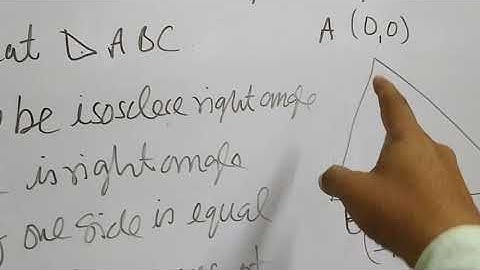 at △ ABC
A (0,0)
be isosclese right angle
is right angle
one side is equal